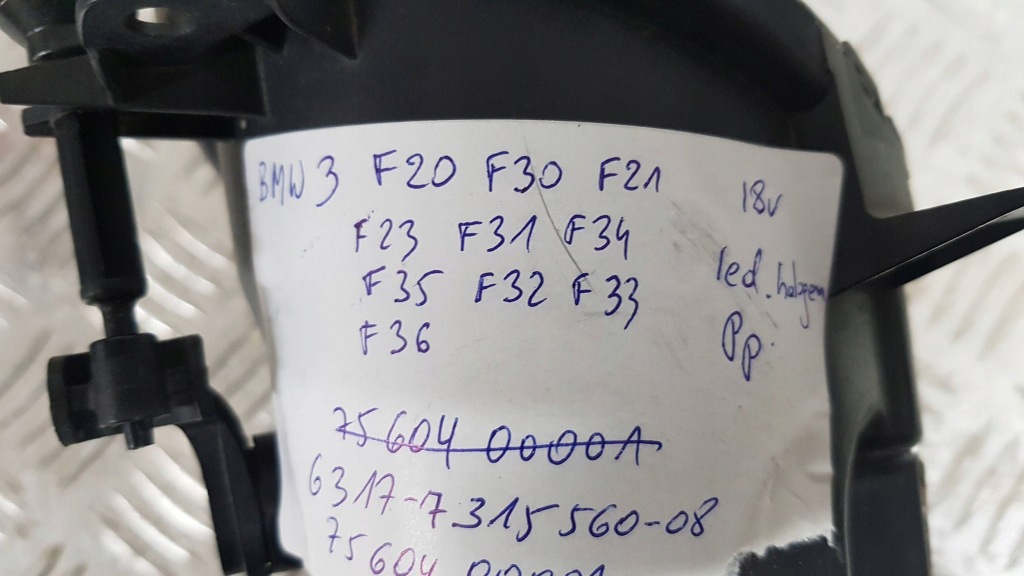 BMW 3 F20 F30 F21
F23 F31 F34
F35 F32 F33
F36
18v
led. halogen
Pp.
75604 00001
6317-7315560-08
75604 00001